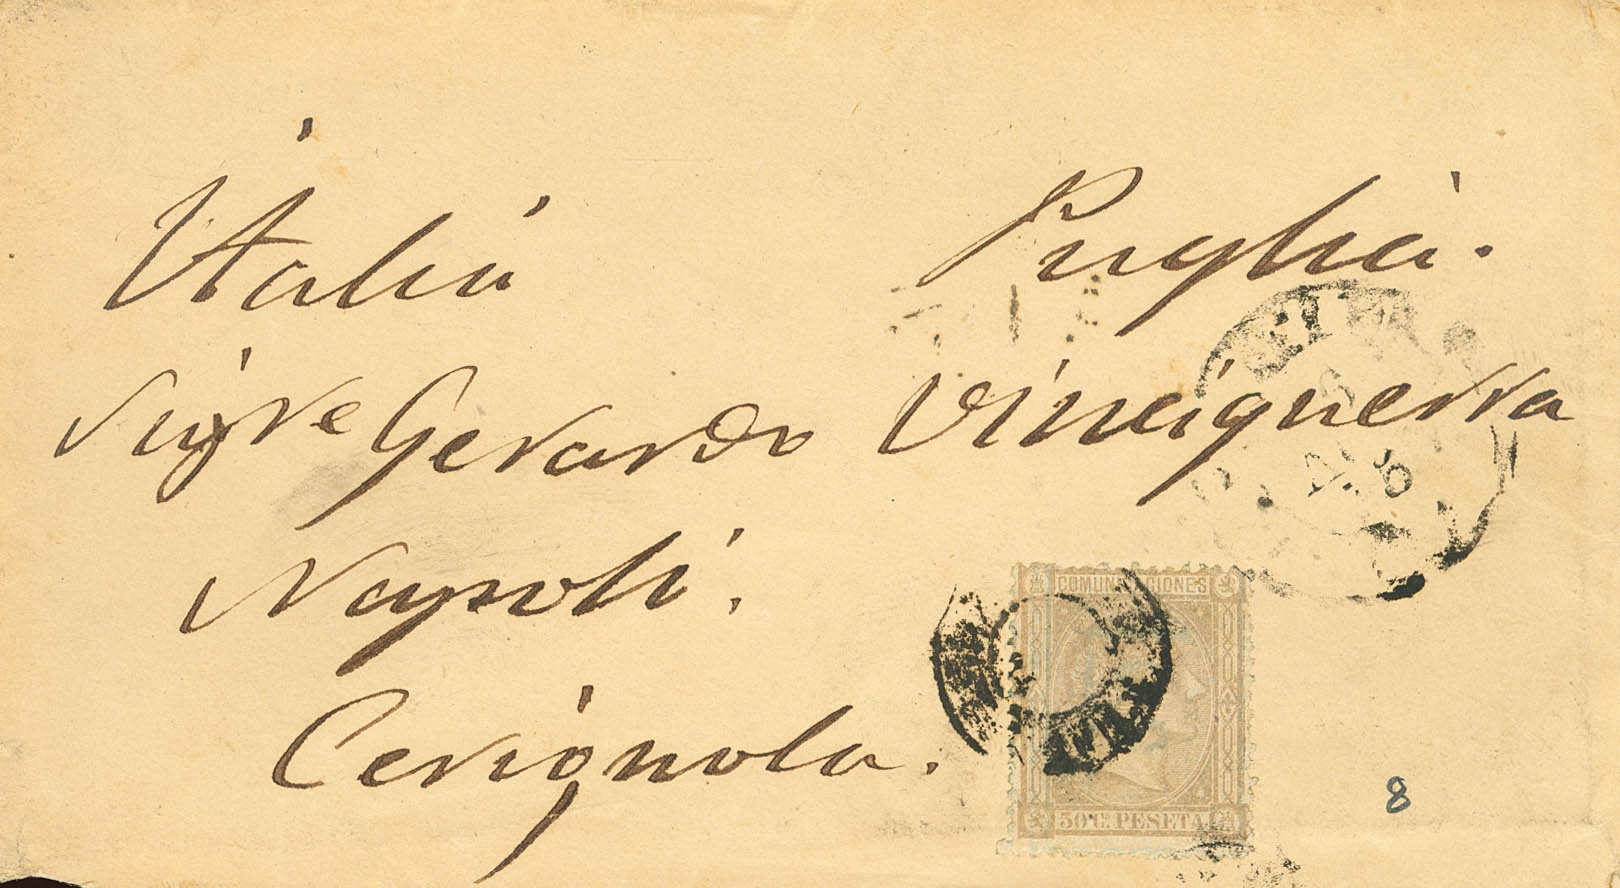 Italia Puglia.
Sigre Gerardo Vinciguerra
Napoli.
Cerignola.
COMUNICACIONES
50 C. PESETA
8